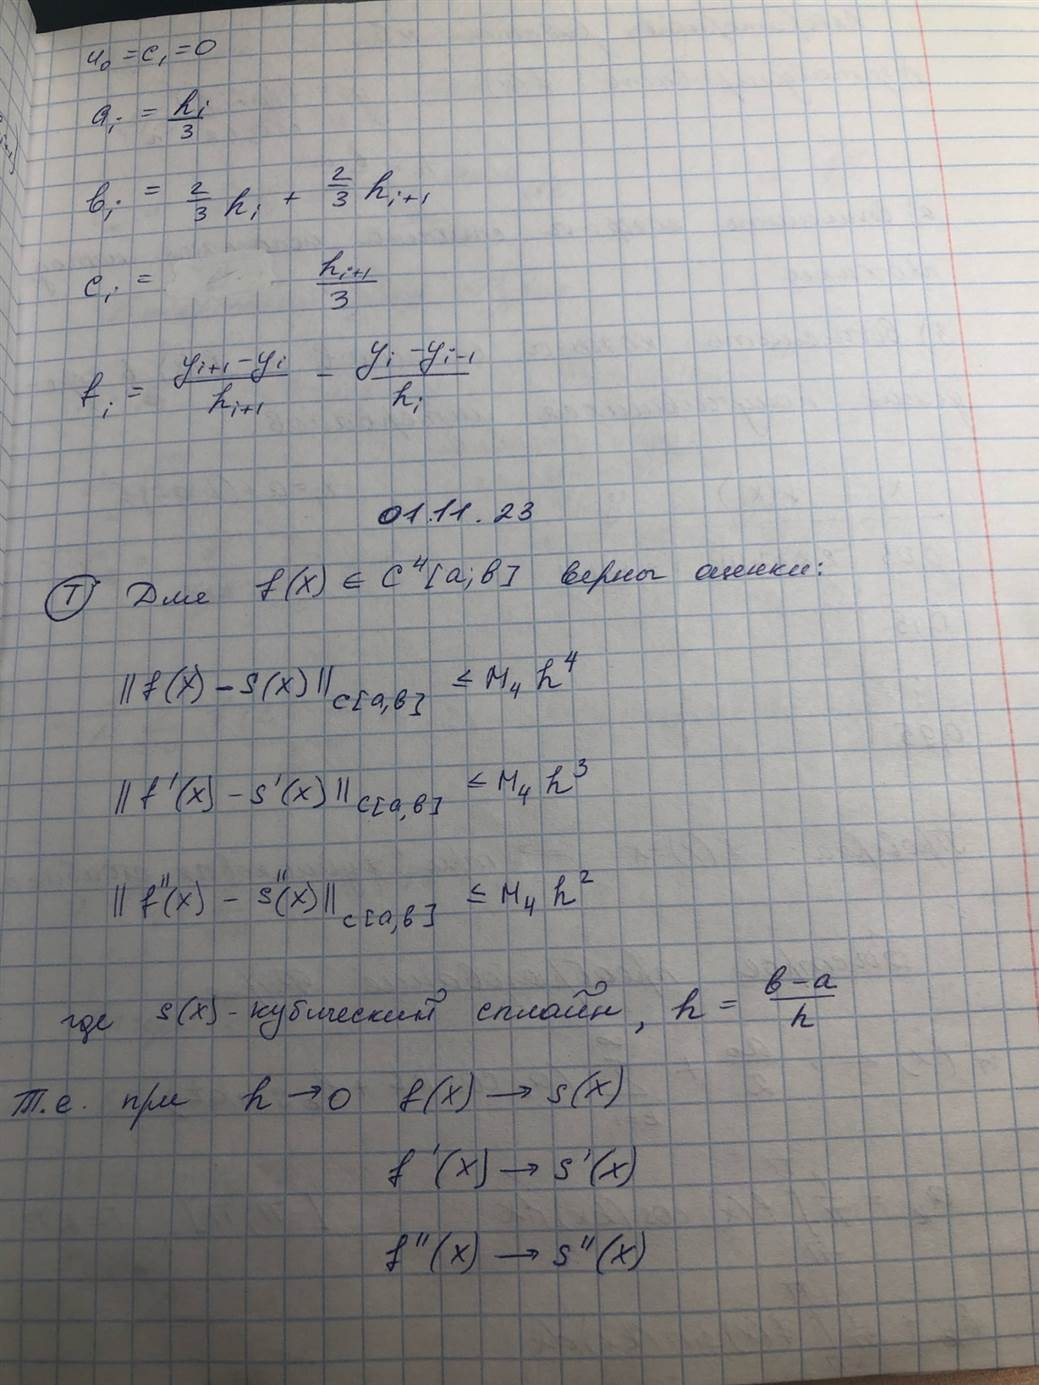 u₀ = c₁ = 0
aᵢ = hᵢ/3
bᵢ = 2/3 hᵢ + 2/3 hᵢ₊₁
cᵢ = hᵢ₊₁/3
fᵢ = (yᵢ₊₁ - yᵢ)/hᵢ₊₁ - (yᵢ - yᵢ₋₁)/hᵢ
01.11.23
Т Для f(x) ∈ C⁴[a;b] верны оценки:
||f(x) - s(x)||_C[a,b] ≤ M₄ h⁴
||f'(x) - s'(x)||_C[a,b] ≤ M₄ h³
||f''(x) - s''(x)||_C[a,b] ≤ M₄ h²
где s(x) - кубический сплайн, h = (b-a)/n
Т.е. при h → 0 f(x) → s(x)
f'(x) → s'(x)
f''(x) → s''(x)